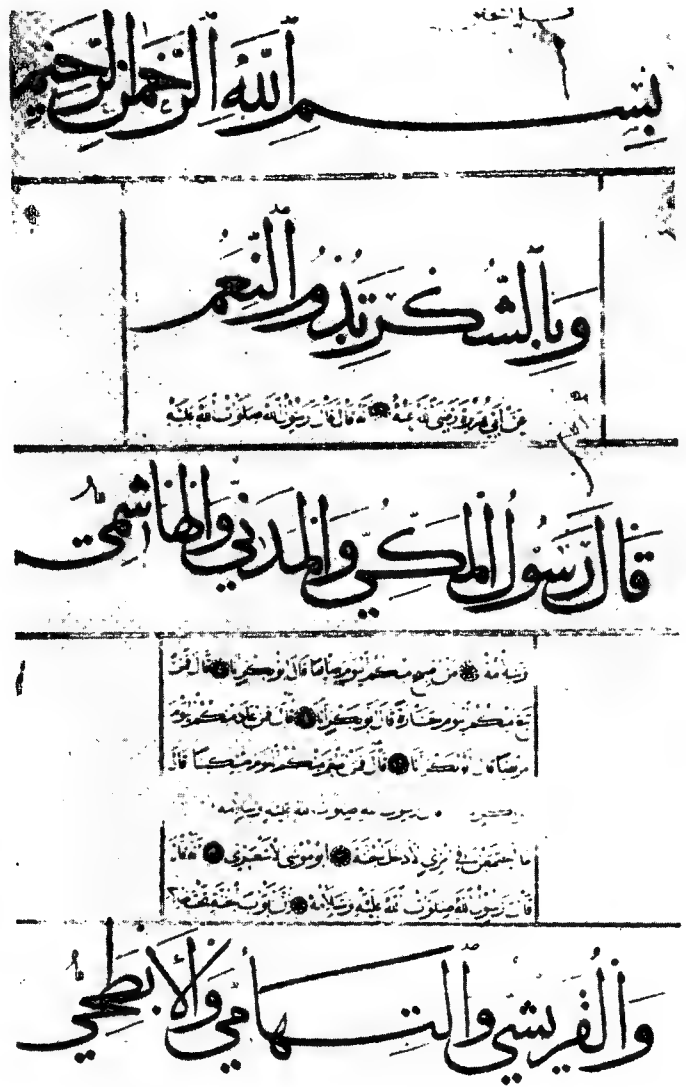 بِسْمِ اللّٰهِ الرَّحْمٰنِ الرَّحِيمِ
وَبِالشُّكْرِ تَدُومُ النِّعَمُ
عن أبي هريرة رضي الله عنه أنه قال قال رسول الله صلوات الله عليه
قَالَ رَسُولُ الْمَكِّيِّ وَالْمَدَنِيِّ وَالْهَاشِمِيِّ
وسلامه من أصبح منكم اليوم صائما قال أبو بكر أنا قال فمن
تبع منكم اليوم جنازة قال أبو بكر أنا قال فمن عاد منكم اليوم
مريضا قال أبو بكر أنا قال فمن أطعم منكم اليوم مسكينا قال
رسول الله صلوات الله عليه وسلامه
ما اجتمعن في امرئ إلا دخل الجنة أبو موسى الأشعري أنه قال
قال رسول الله صلوات الله عليه وسلامه إن أبواب الجنة تحت
وَالْقُرَيْشِيِّ وَالتِّهَامِيِّ وَالْأَبْطَحِيِّ